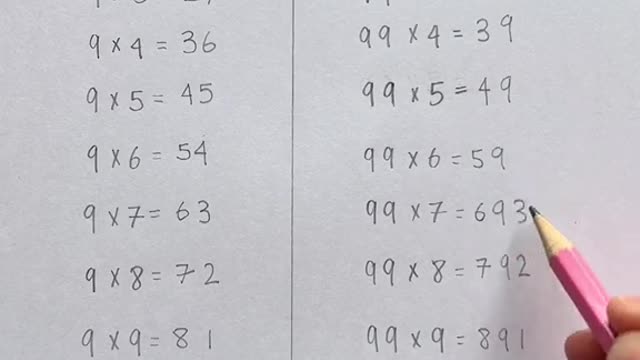 9 × 4 = 36
9 × 5 = 45
9 × 6 = 54
9 × 7 = 63
9 × 8 = 72
9 × 9 = 81
99 × 4 = 39
99 × 5 = 49
99 × 6 = 59
99 × 7 = 693
99 × 8 = 792
99 × 9 = 891